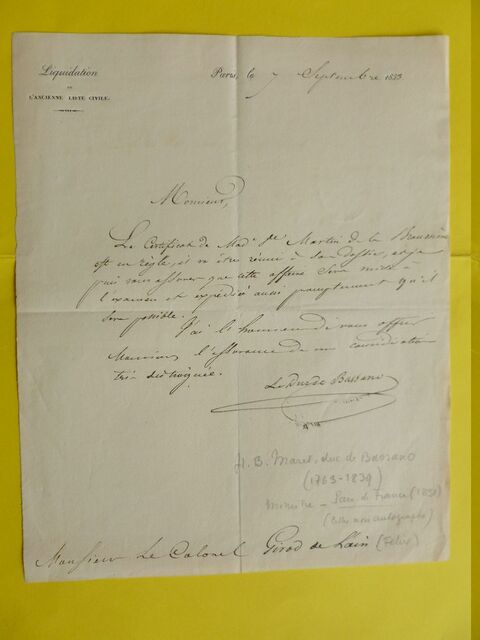 Liquidation
DE
L'ANCIENNE LISTE CIVILE.
Paris, le 7 Septembre 1833.
Monsieur,
Le Certificat de Mad.e de St. Martin de la
est en règle, il va être réuni à son dossier, et je
puis vous assurer que cette affaire sera mise à
l'examen et expédiée aussi promptement qu'il
sera possible.
J'ai l'honneur de vous offrir
Monsieur, l'assurance de ma considération
très distinguée.
Le Duc de Bassano
H. B. Maret, duc de Bassano
(1763-1839)
Ministre - Pair de France (1831)
(lettre non autographe)
Monsieur Le Colonel Girod de l'Ain (Félix)